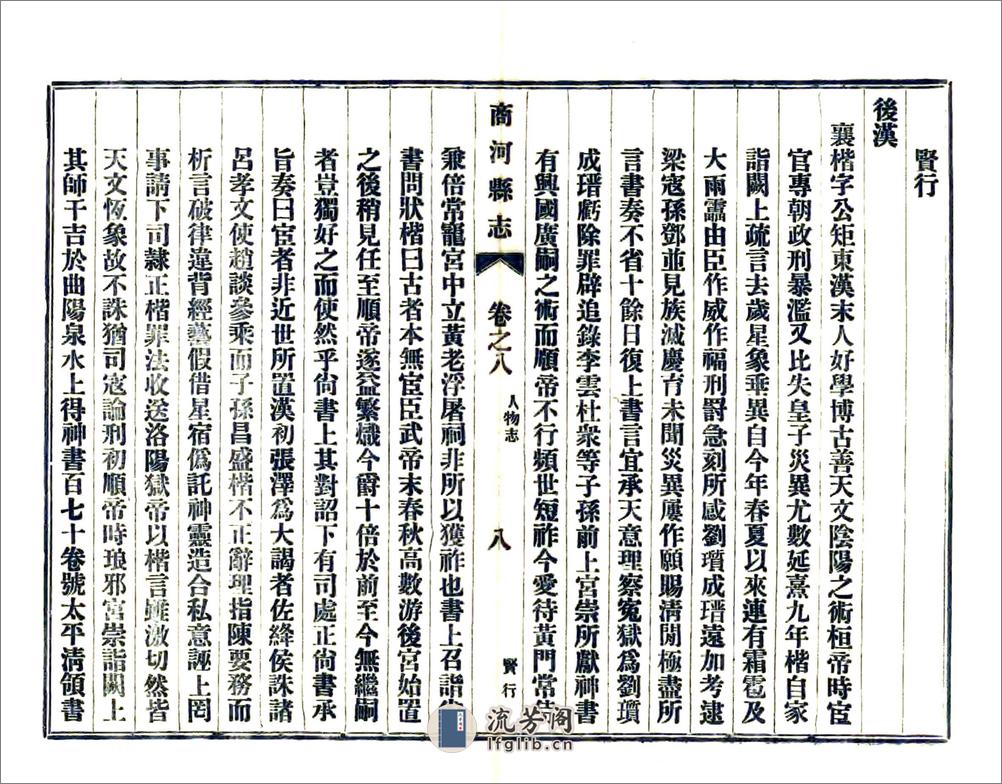 賢行
後漢
襄楷字公矩東漢末人好學博古善天文陰陽之術桓帝時宦
官專朝政刑暴濫又比失皇子災異尤數延熹九年楷自家
詣闕上疏言去歲星象垂異自今年春夏以來連有霜雹及
大雨靁由臣作威作福刑罰急刻所感劉瓆成瑨遠加考逮
梁寇孫鄧並見族滅慶育未聞災異屢作願賜清閒極盡所
言書奏不省十餘日復上書言宜承天意理察寃獄爲劉瓆
成瑨虧除罪辟追錄李雲杜衆等子孫前上宮崇所獻神書
有興國廣嗣之術而順帝不行頻世短祚今愛待黃門常侍
商河縣志
卷之八
人物志
八
賢行
兼倍常寵宮中立黃老浮屠祠非所以獲祚也書上召詣尙
書問狀楷曰古者本無宦臣武帝末春秋高數游後宮始置
之後稍見任至順帝遂益繁熾今爵十倍於前至今無繼嗣
者豈獨好之而使然乎尙書上其對詔下有司處正尙書承
旨奏曰宦者非近世所置漢初張澤爲大謁者佐絳侯誅諸
呂孝文使趙談參乘而子孫昌盛楷不正辭理指陳要務而
析言破律違背經藝假借星宿僞託神靈造合私意誣上罔
事請下司隸正楷罪法收送洛陽獄帝以楷言雖激切然皆
天文恆象故不誅猶司寇論刑初順帝時琅邪宮崇詣闕上
其師干吉於曲陽泉水上得神書百七十卷號太平清領書
流芳阁
lfglib.cn